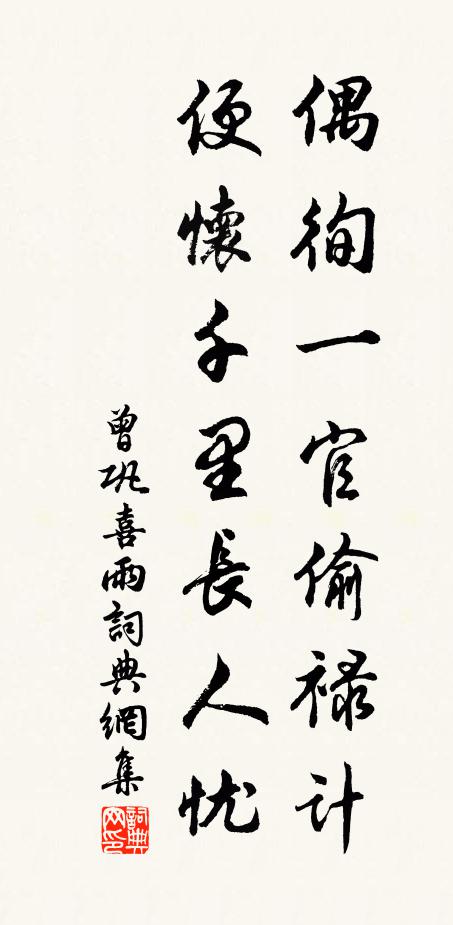 偶徇一官偷祿计
便懷千里長人忧
曾巩喜雨詞典網集
詞典网印